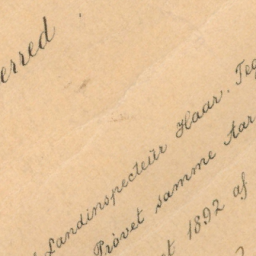 erred
Landinspecteür Haar. Teg
Prövet samme Aar
1892 af